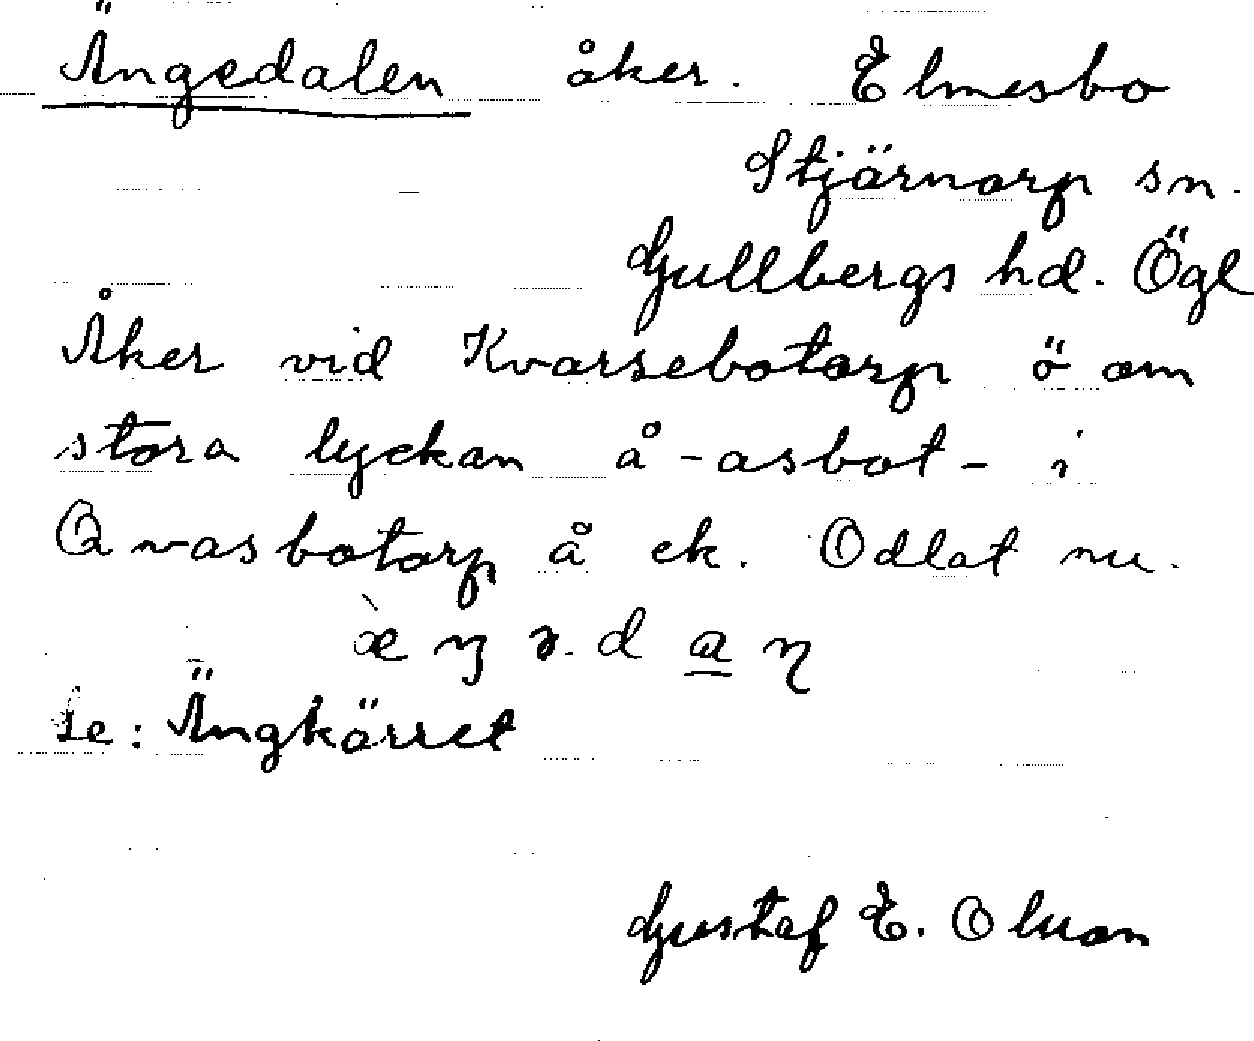 Ängedalen åker. Elmesbo
Stjärnorp sn.
Gullbergs hd. Ögl
Åker vid Kvarsebotorp ö om
stora lyckan å -asbot- i
Qvasbotorp å ek. Odlat nu.
æ̀ŋɜ.da̲ɳ
Se: Ängkärret
Gustaf E. Olsson